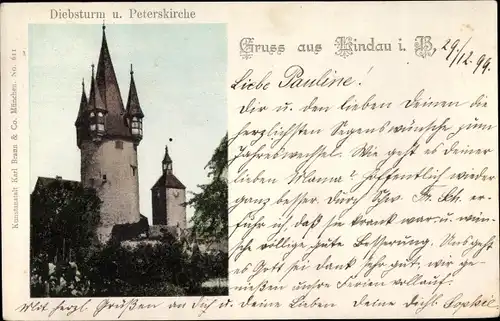 Diebsturm u. Peterskirche
Kunstanstalt Karl Braun & Co. München. No. 611
Gruss aus Lindau i. B.
29/12.99.
Liebe Pauline!
Dir u. den lieben Deinen die
herzlichsten Segenswünsche zum
Jahreswechsel. Wie geht es deiner
lieben Mama? Hoffentlich wieder
ganz besser. Durch Schw. Fr. Sch. er-
fuhr ich, daß sie krank war u. wün-
sche völlige gute Besserung. Uns geht
es Gott sei Dank sehr gut, wir ge-
nießen unsre Ferien vollauf.
Mit herzl. Grüßen an Dich u. deine Lieben Deine dichl. Sophie